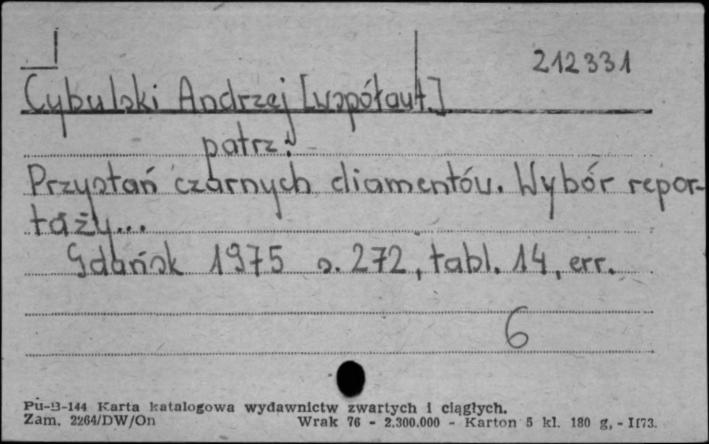 212331
Cybulski Andrzej [współaut.]
patrz:
Przystań czarnych diamentów. Wybór repor-
taży...
Gdańsk 1975 s. 272, tabl. 14, err.
6
Pu-B-144 Karta katalogowa wydawnictw zwartych i ciągłych.
Zam. 2264/DW/On Wrak 76 - 2.300.000 - Karton 5 kl. 180 g, - II73.